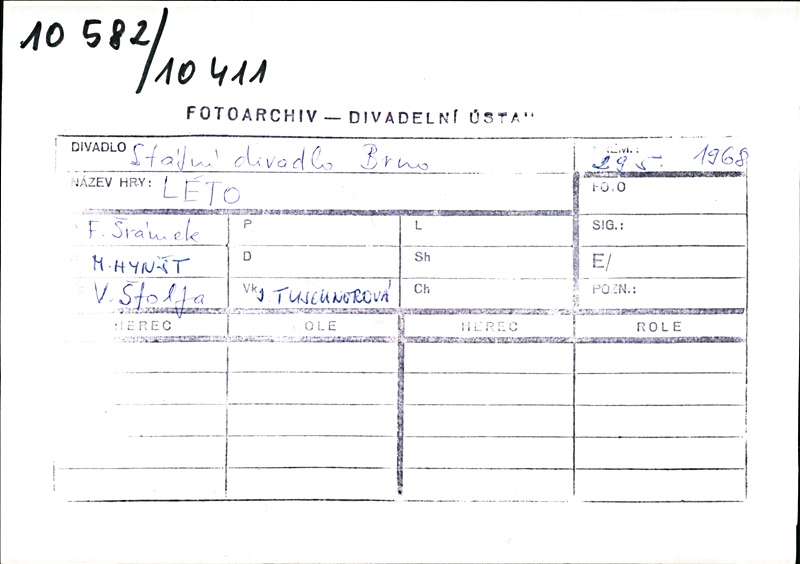 10 582/
10 411
FOTOARCHIV — DIVADELNÍ ÚSTA
DIVADLO Státní divadlo Brno
29 5. 1968
NÁZEV HRY: LÉTO
FOTO
F. Šrámek P L SIG.:
M. HYNŠT D Sh E/
V. Štolfa Vk J TUSCHNEROVÁ Ch POZN.:
HEREC ROLE HEREC ROLE